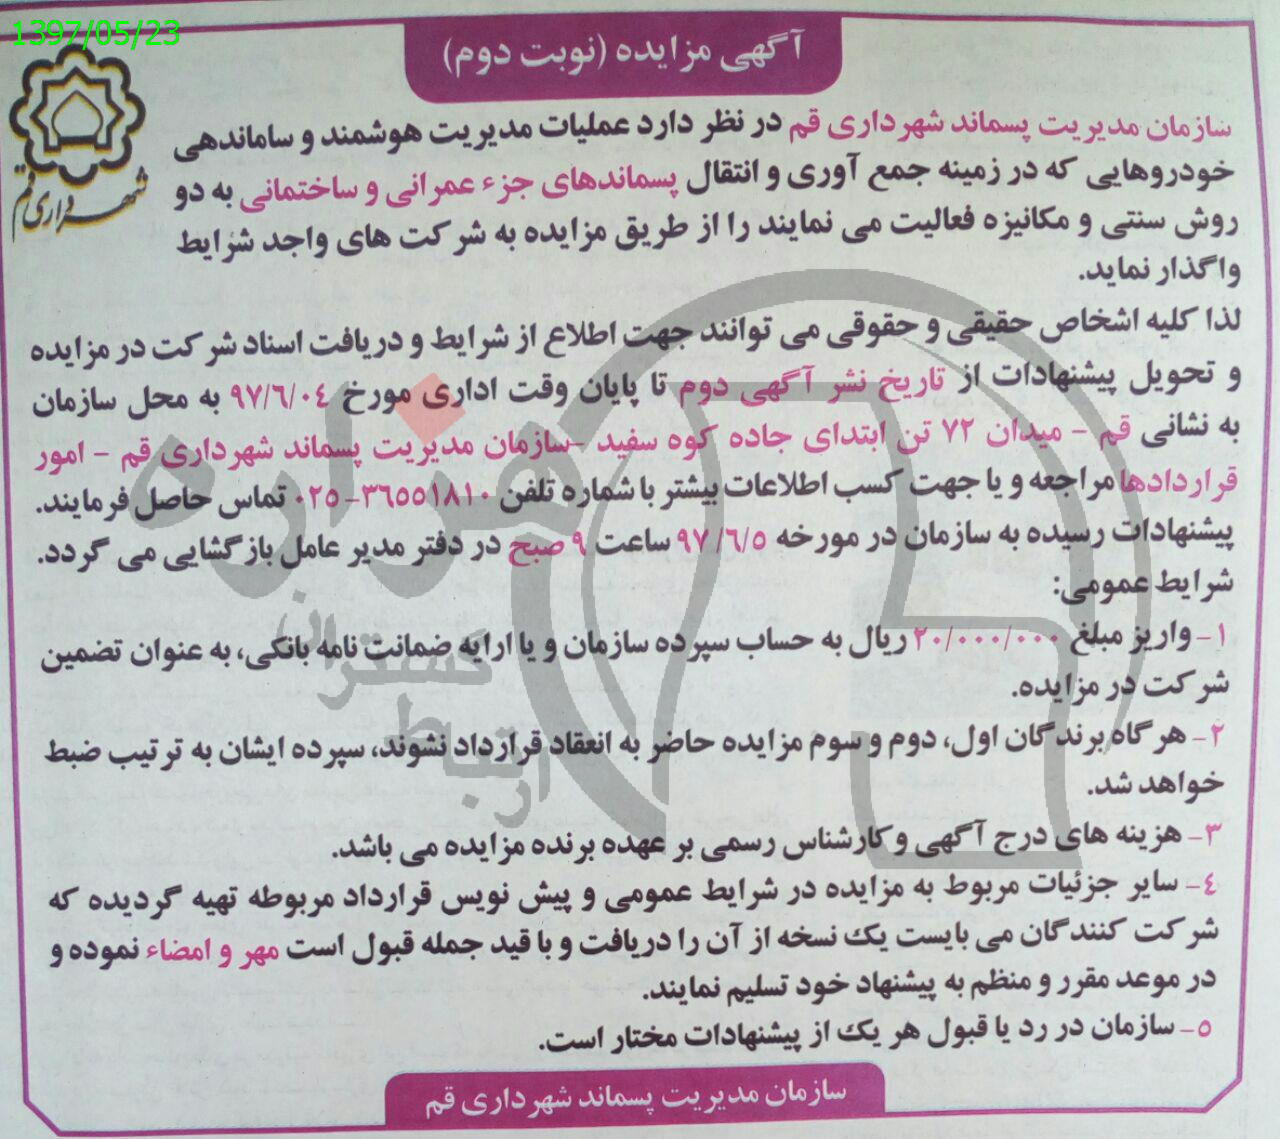 1397/05/23
آگهی مزایده (نوبت دوم)
شهرداری قم
سازمان مدیریت پسماند شهرداری قم در نظر دارد عملیات مدیریت هوشمند و ساماندهی
خودروهایی که در زمینه جمع آوری و انتقال پسماندهای جزء عمرانی و ساختمانی به دو
روش سنتی و مکانیزه فعالیت می نمایند را از طریق مزایده به شرکت های واجد شرایط
واگذار نماید.
لذا کلیه اشخاص حقیقی و حقوقی می توانند جهت اطلاع از شرایط و دریافت اسناد شرکت در مزایده
و تحویل پیشنهادات از تاریخ نشر آگهی دوم تا پایان وقت اداری مورخ ۹۷/۶/۰۴ به محل سازمان
به نشانی قم - میدان ۷۲ تن ابتدای جاده کوه سفید -سازمان مدیریت پسماند شهرداری قم - امور
قراردادها مراجعه و یا جهت کسب اطلاعات بیشتر با شماره تلفن ۳۶۵۵۱۸۱۰-۰۲۵ تماس حاصل فرمایند.
پیشنهادات رسیده به سازمان در مورخه ۹۷/۶/۵ ساعت ۹ صبح در دفتر مدیر عامل بازگشایی می گردد.
شرایط عمومی:
۱- واریز مبلغ ۲۰/۰۰۰/۰۰۰ ریال به حساب سپرده سازمان و یا ارایه ضمانت نامه بانکی، به عنوان تضمین
شرکت در مزایده.
۲- هر گاه برندگان اول، دوم و سوم مزایده حاضر به انعقاد قرارداد نشوند، سپرده ایشان به ترتیب ضبط
خواهد شد.
۳- هزینه های درج آگهی و کارشناس رسمی بر عهده برنده مزایده می باشد.
۴- سایر جزئیات مربوط به مزایده در شرایط عمومی و پیش نویس قرارداد مربوطه تهیه گردیده که
شرکت کنندگان می بایست یک نسخه از آن را دریافت و با قید جمله قبول است مهر و امضاء نموده و
در موعد مقرر و منظم به پیشنهاد خود تسلیم نمایند.
۵- سازمان در رد یا قبول هر یک از پیشنهادات مختار است.
سازمان مدیریت پسماند شهرداری قم
هزاره
گستران
ارتباط